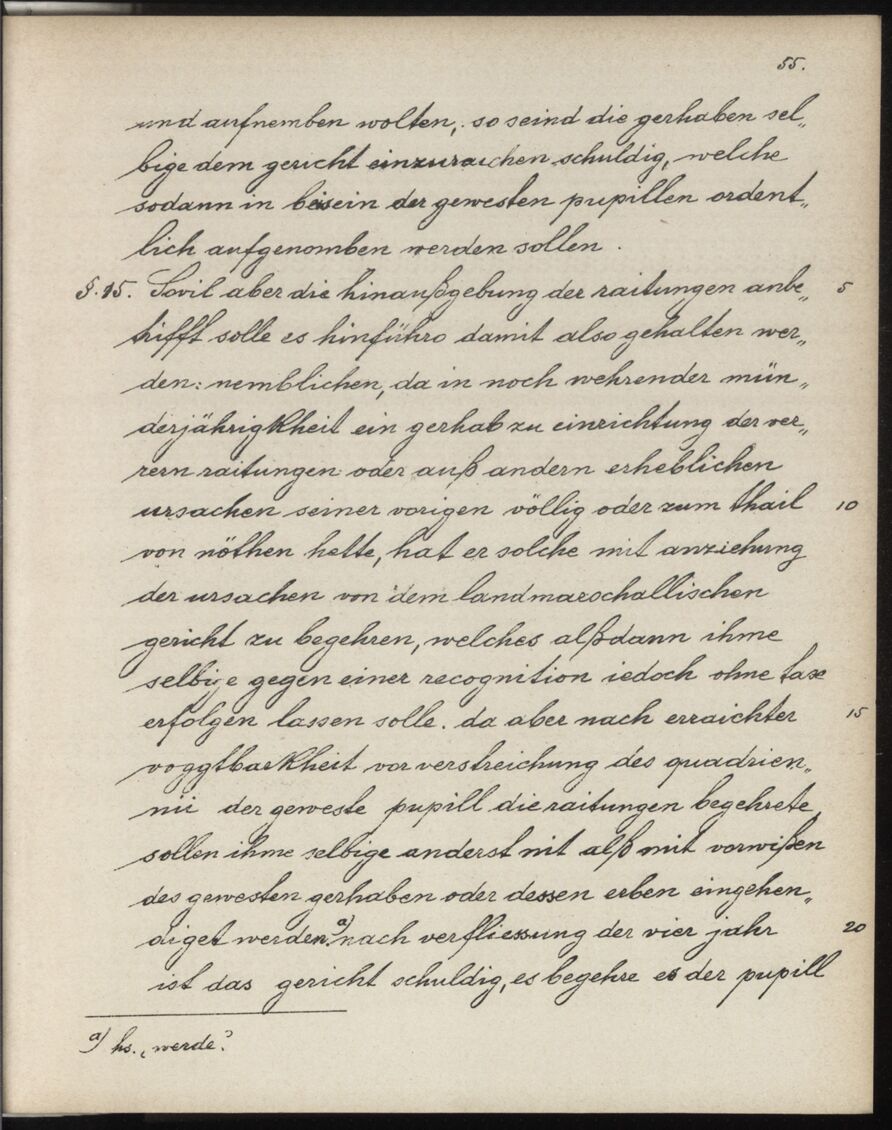 55.
und aufnemben wolten, so seind die gerhaben sel„
bige dem gericht einzuraichen schuldig, welche
sodann in beisein der gewesten pupillen ordent„
lich aufgenomben werden sollen.
§. 15. Sovil aber die hinaußgebung der raitungen anbe„ 5
trifft solle es hinführo damit also gehalten wer„
den: nemblichen, da in noch wehrender mün„
derjährigkheit ein gerhab zu einrichtung der ver„
rern raitungen oder auß andern erheblichen
ursachen seiner vorigen völlig oder zum thail 10
von nöthen hette, hat er solche mit anziehung
der ursachen von dem landmarschallischen
gericht zu begehren, welches alßdann ihme
selbige gegen einer recognition iedoch ohne tax
erfolgen lassen solle. da aber nach erraichter 15
voggtbarkheit vor verstreichung des quadrien„
nii der geweste pupill die raitungen begehrete,
sollen ihme selbige anderst nit alß mit vorwißen
des gewesten gerhaben oder dessen erben eingehen„
diget werden.a) nach verfliessung der vier jahr 20
ist das gericht schuldig, es begehre es der pupill
a) hs. „werde“.